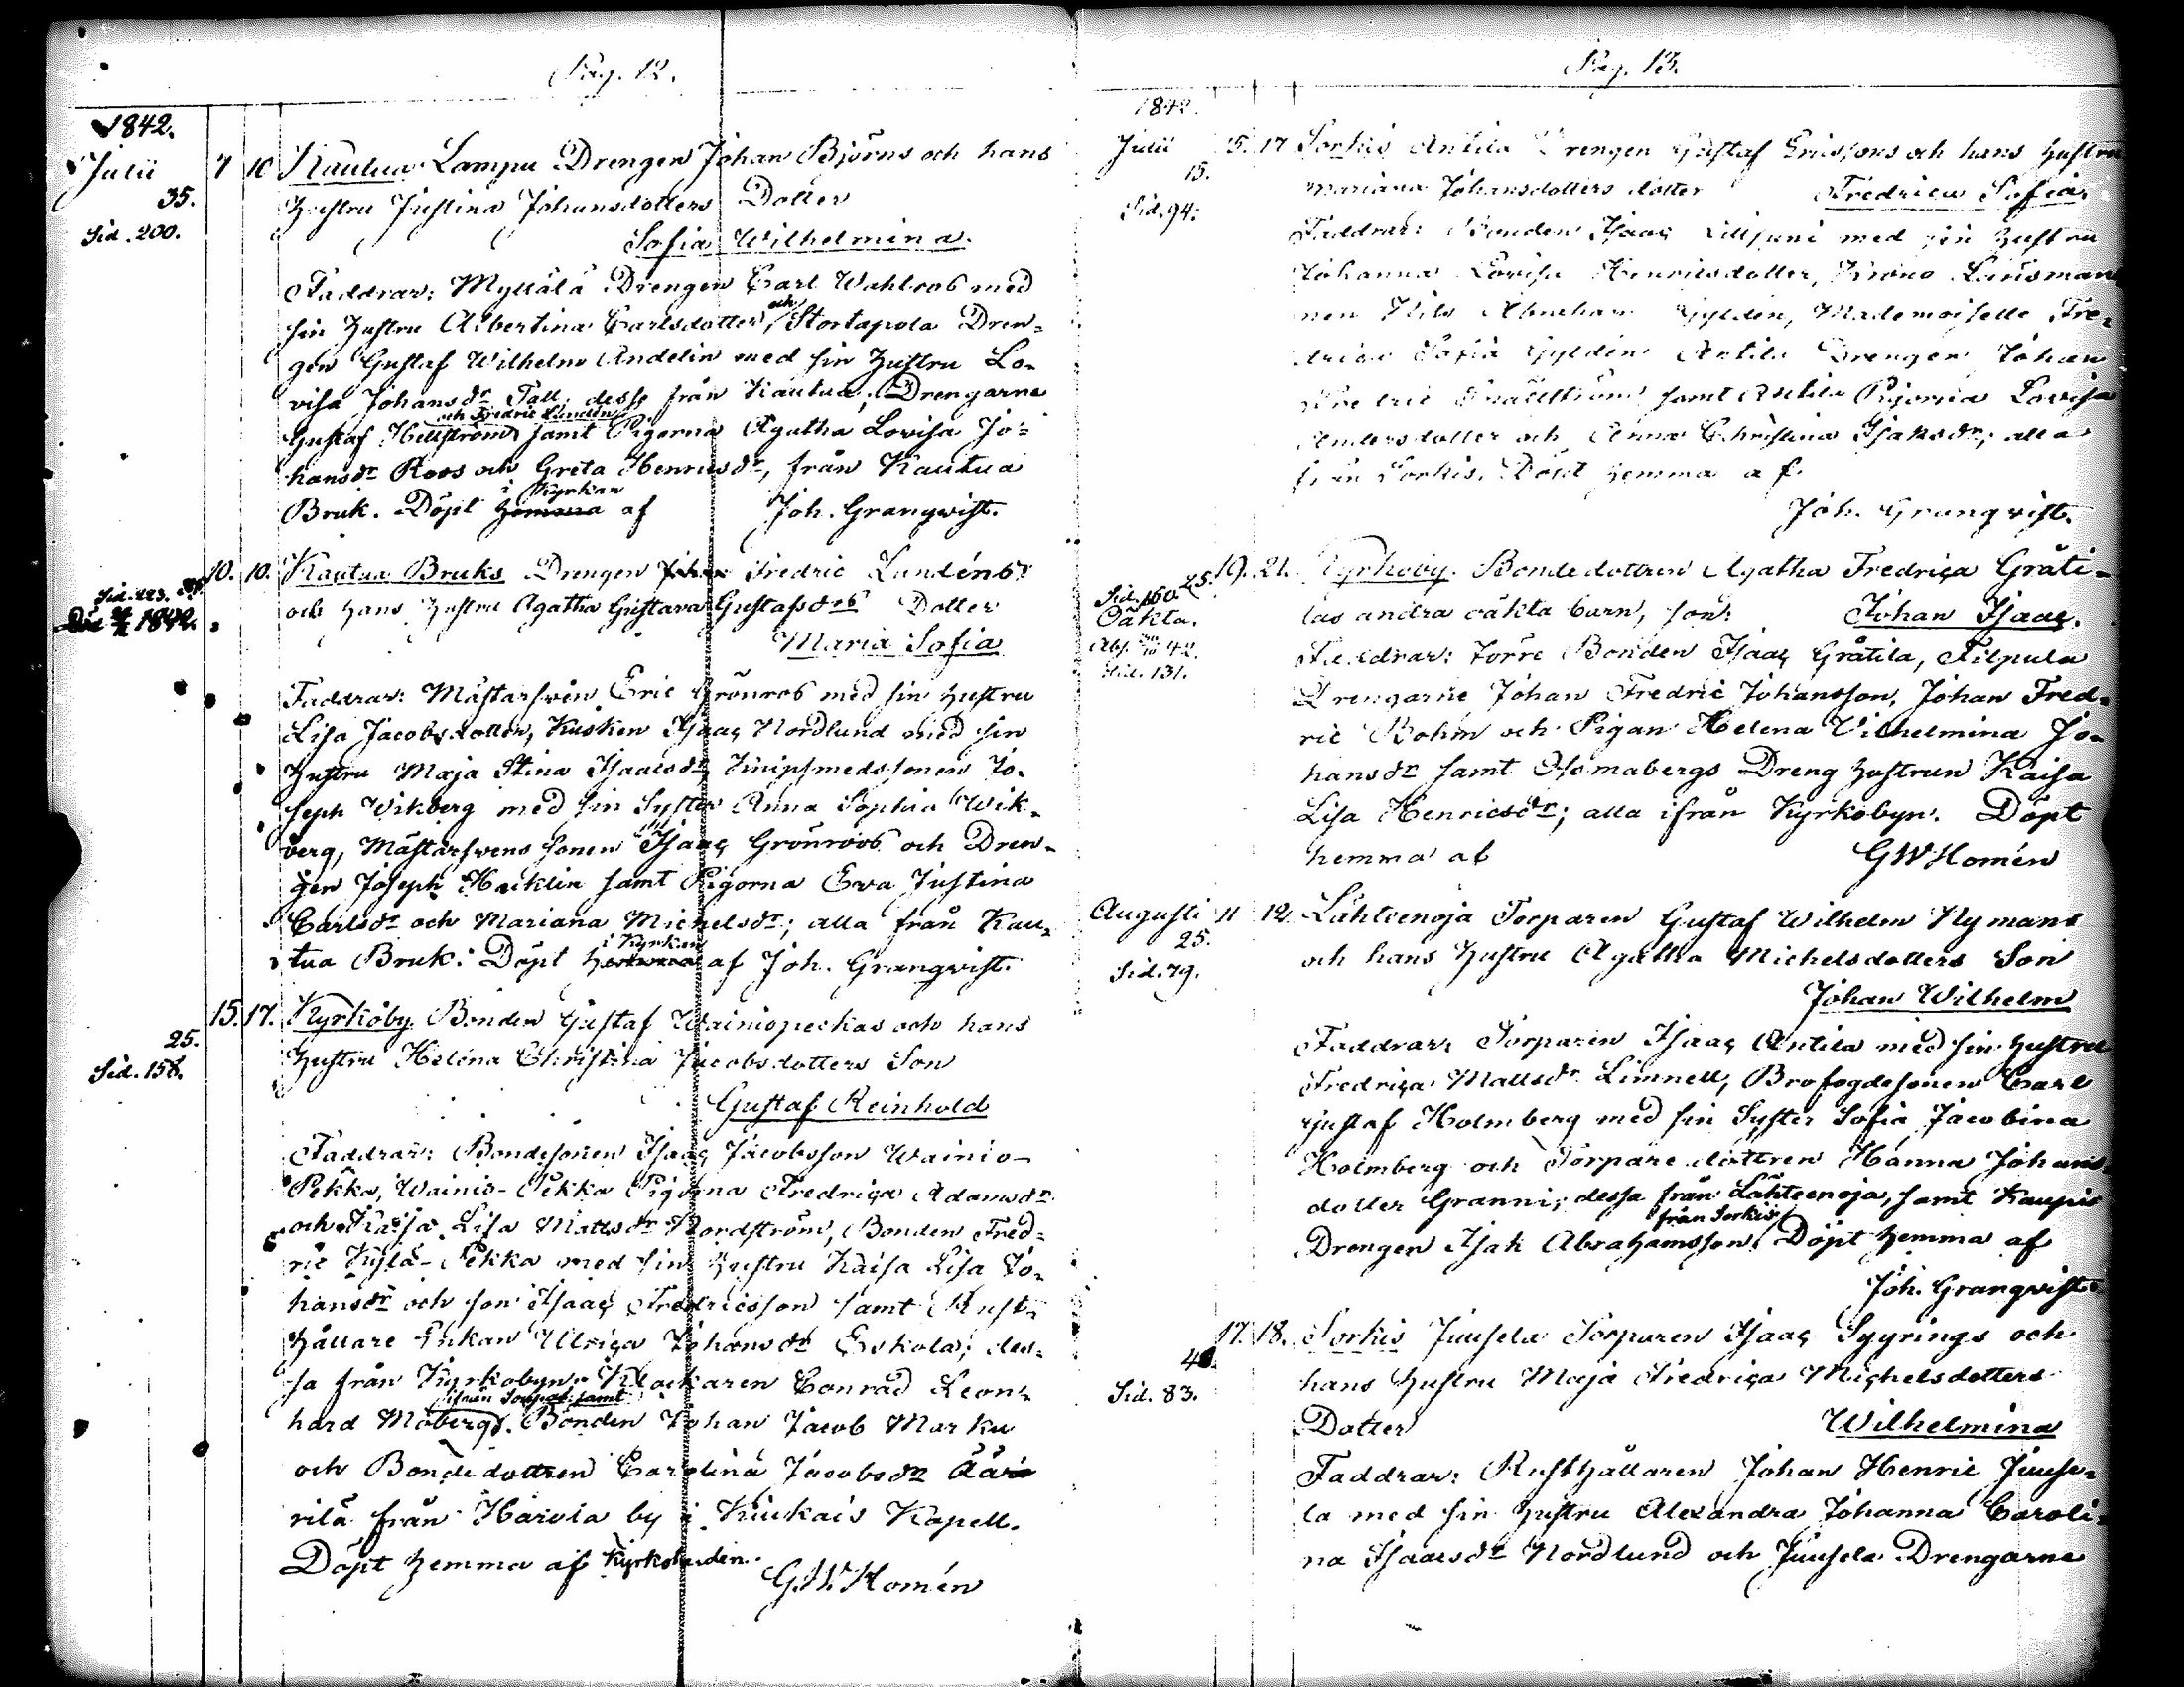 Pag. 12.
1842.
Julii 7 10 Kautua Lampu Drengen Johan Björns och hans
35.
Hustru Justina Johansdotters Dotter
Sid. 200.
Sofia Wilhelmina.
Faddrar: Myllälä Drengen Carl Wahlros med
sin Hustru Albertina Carlsdotter, och Stortapola Dren-
gen Gustaf Wilhelm Andelin med sin Hustru Lo-
visa Johansdr Tall, desse från Kautua, Drengarne
och Fredric Lundén
Gustaf Hellström samt Pigorna Agatha Lovisa Jo-
hansdr Roos och Greta Henricsdr, från Kautua
i Kyrkan
Bruk. Döpt hemma af Joh. Granqvist.
10. 10. Kautua Bruks Drengen Johan Fredric Lundéns
Sid. 223.
och Hans Hustru Agatha Gustava Gustafsdrs Dotter
Död 1842.
Maria Sofia
Faddrar: Mästarsven Eric Grönros med sin Hustru
Lisa Jacobsdotter, Kusken Isaac Nordlund med sin
Hustru Maja Stina Isaacsdr, Knipsmedssonen Jo-
seph Wikberg med sin Syster Anna Sophia Wik-
berg, Mästarsvens sonen Isaac Grönroos och Dren-
gen Joseph Hacklin samt Pigorna Eva Justina
Carlsdr och Mariana Michelsdr; alla från Kau-
i Kyrkan
tua Bruk. Döpt hemma af Joh. Granqvist.
15. 17. Kyrkoby Bonden Gustaf Wainiopeckas och hans
25.
Hustru Helena Christina Jacobsdotters Son
Sid. 158.
Gustaf Reinhold
Faddrar: Bondesonen Isaac Jacobsson Wainio-
Pekka, Wainio-Pekka Pigorna Fredrica Adamsdr
och Kajsa Lisa Mattsdr Nordström, Bonden Fred-
ric Kylä-Pekka med sin Hustru Kaisa Lisa Jo-
hansdr och son Isaac Fredricsson samt Rust-
hållare Enkan Ulrica Johansdr Eskola; des-
sa från Kyrkobyn. Klockaren Conrad Leon-
samt
hard Moberg. Bonden Johan Jacob Marku
och Bondedottren Carolina Jacobsdr Ääri
rilä från Harola by i Kiukais Kapell.
Döpt hemma af Kyrkoherden.
G.W. Homén
Pag. 13.
1842.
Julii 15. 17 Sorkis Antila Drengen Gustaf Ericssons och hans Hustru
15.
Mariana Johansdotters dotter Fredrica Sofia.
Sid. 94.
Faddrar: Bonden Isaac Lilljuni med sin Hustru
Johanna Lovisa Henricsdotter, Krono Länsman
nen Nils Abraham Gyldén, Mademoiselle Fre-
drica Sofia Gyldén Antila Drengen Johan
Fredric Snällström samt Antila Pigorna Lovisa
Andersdotter och Anna Christina Isaksdr, alla
från Sorkis. Döpt hemma af.
Joh. Granqvist.
19. 21. Kyrkoby. Bondedottren Agatha Fredrica Gråti-
25.
Sid. 160
las andra oäkta barn, son: Johan Isaac.
Oäkta.
Faddrar: Förre Bonden Isaac Gråtila, Filpula
Sid. 131.
Drengarne Johan Fredric Johansson, Johan Fred-
ric Bohm och Pigan Helena Vilhelmina Jo-
hansdr samt Isomabergs Dreng Hustrun Kaisa
Lisa Henricsdr; alla ifrån Kyrkobyn. Döpt
hemma af GW Homén
Augusti 11 12. Lähteenoja Torparen Gustaf Wilhelm Nymans
25.
och hans Hustru Agatha Michelsdotters Son
Sid. 79.
Johan Wilhelm
Faddrar, Torparen Isaac Antila med sin Hustru
Fredrica Mattsdr Limnell, Brofogdesonen Carl
Gustaf Holmberg med sin Syster Sofia Jacobina
Holmberg och Torpare dottren Hanna Johans-
dotter Granni, dessa från Lähteenoja, samt Kaupis
från Sorkis
Drengen Isak Abrahamsson. Döpt hemma af
Joh. Granqvist.
17. 18. Sorkis Juusela Torparen Isaac Syyrings och
hans Hustru Maja Fredrica Michelsdotters
Sid. 83.
Dotter Wilhelmina
Faddrar: Rusthållaren Johan Henric Juuse-
la med sin Hustru Alexandra Johanna Caroli-
na Isaacsdr Nordlund och Juusela Drengarne